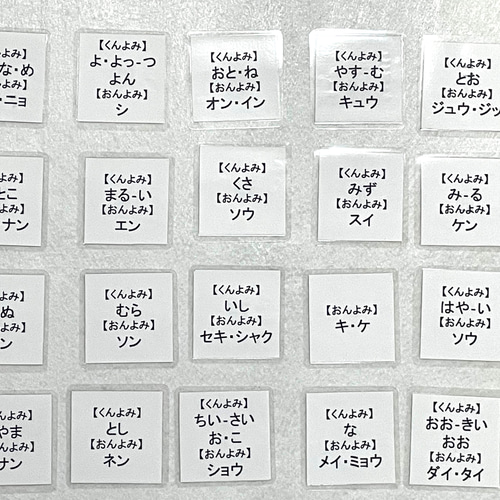 な・め
ニョ
【くんよみ】
よ・よっ-つ
よん
【おんよみ】
シ
【くんよみ】
おと・ね
【おんよみ】
オン・イン
【くんよみ】
やす-む
【おんよみ】
キュウ
【くんよみ】
とお
【おんよみ】
ジュウ・ジッ
とこ
ナン
【くんよみ】
まる-い
【おんよみ】
エン
【くんよみ】
くさ
【おんよみ】
ソウ
【くんよみ】
みず
【おんよみ】
スイ
【くんよみ】
み-る
【おんよみ】
ケン
ぬ
ン
【くんよみ】
むら
【おんよみ】
ソン
【くんよみ】
いし
【おんよみ】
セキ・シャク
【おんよみ】
キ・ケ
【くんよみ】
はや-い
【おんよみ】
ソウ
やま
サン
【くんよみ】
とし
【おんよみ】
ネン
【くんよみ】
ちい-さい
お・こ
【おんよみ】
ショウ
【くんよみ】
な
【おんよみ】
メイ・ミョウ
【くんよみ】
おお-きい
おお
【おんよみ】
ダイ・タイ